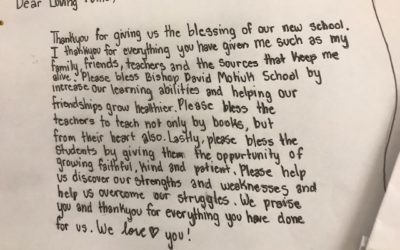 Dear Loving
Thankyou for giving us the blessing of our new school.
I thankyou for everything you have given me such as my
family, friends, teachers and the sources that keep me
alive. Please bless Bishop David Motiuk School by
increase our learning abilities and helping our
friendships grow healthier. Please bless the
teachers to teach not only by books, but
from their heart also. Lastly, please bless the
students by giving them the opportunity of
growing faithful, kind and patient. Please help
us discover our strengths and weaknesses and
help us overcome our struggles. We praise
you and thankyou for everything you have done
for us. We love ♡ you!